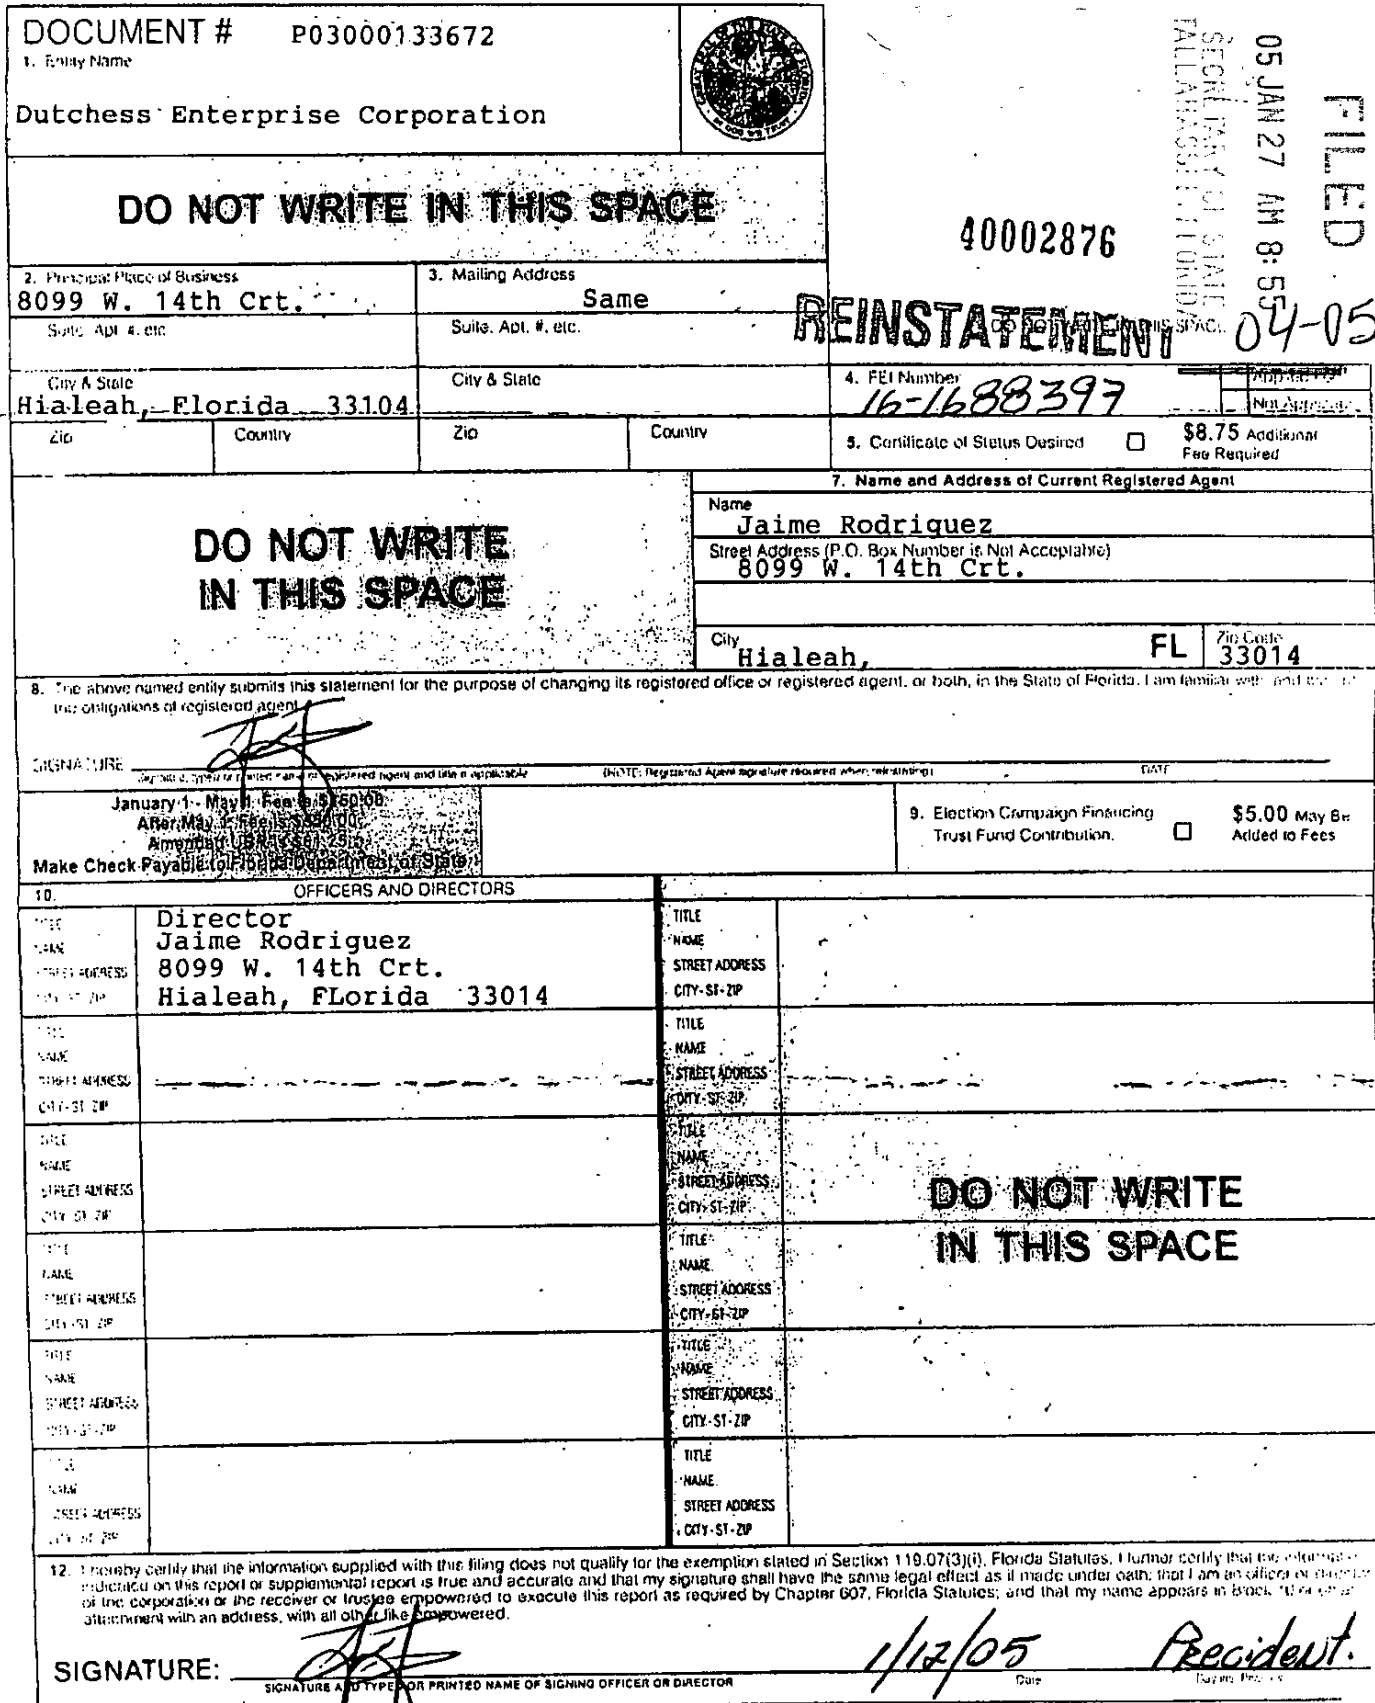 DOCUMENT # P03000133672
1. Entity Name
Dutchess Enterprise Corporation
GREAT SEAL OF THE STATE OF FLORIDA
IN GOD WE TRUST
FILED
05 JAN 27 AM 8:55
SECRETARY OF STATE
TALLAHASSEE FLORIDA
DO NOT WRITE IN THIS SPACE
40002876
2. Principal Place of Business
8099 W. 14th Crt.
3. Mailing Address
Same
REINSTATEMENT
04-05
Suite, Apt. #, etc.
Suite, Apt. #, etc.
City & State
Hialeah, Florida 33104
City & State
4. FEI Number
16-1688397
Applied For
Not Applicable
Zip Country
Zip Country
5. Certificate of Status Desired
$8.75 Additional
Fee Required
7. Name and Address of Current Registered Agent
DO NOT WRITE
IN THIS SPACE
Name
Jaime Rodriquez
Street Address (P.O. Box Number is Not Acceptable)
8099 W. 14th Crt.
City
Hialeah,
FL
Zip Code
33014
8. The above named entity submits this statement for the purpose of changing its registered office or registered agent, or both, in the State of Florida. I am familiar with, and
the obligations of registered agent
SIGNATURE
Signature, typed or printed name of registered agent and title if applicable
(NOTE: Registered Agent signature required when reinstating)
DATE
January 1 - May 1 Fee is $150.00
After May 1 Fee is $550.00
Amended UBR is $61.25
Make Check Payable to Florida Department of State
9. Election Campaign Financing
Trust Fund Contribution.
$5.00 May Be
Added to Fees
10. OFFICERS AND DIRECTORS
TITLE Director
NAME Jaime Rodriguez
STREET ADDRESS 8099 W. 14th Crt.
CITY-ST-ZIP Hialeah, FLorida 33014
TITLE
NAME
STREET ADDRESS
CITY-ST-ZIP
TITLE
NAME
STREET ADDRESS
CITY-ST-ZIP
TITLE
NAME
STREET ADDRESS
CITY-ST-ZIP
TITLE
NAME
STREET ADDRESS
CITY-ST-ZIP
TITLE
NAME
STREET ADDRESS
CITY-ST-ZIP
TITLE
NAME
STREET ADDRESS
CITY-ST-ZIP
TITLE
NAME
STREET ADDRESS
CITY-ST-ZIP
TITLE
NAME
STREET ADDRESS
CITY-ST-ZIP
TITLE
NAME
STREET ADDRESS
CITY-ST-ZIP
TITLE
NAME
STREET ADDRESS
CITY-ST-ZIP
TITLE
NAME
STREET ADDRESS
CITY-ST-ZIP
DO NOT WRITE
IN THIS SPACE
12. I hereby certify that the information supplied with this filing does not qualify for the exemption stated in Section 119.07(3)(i), Florida Statutes. I further certify that the information
indicated on this report or supplemental report is true and accurate and that my signature shall have the same legal effect as if made under oath; that I am an officer or director
of the corporation or the receiver or trustee empowered to execute this report as required by Chapter 607, Florida Statutes; and that my name appears in Block 10 or on an
attachment with an address, with all other like empowered.
SIGNATURE:
1/12/05
Precident.
SIGNATURE AND TYPED OR PRINTED NAME OF SIGNING OFFICER OR DIRECTOR
Date